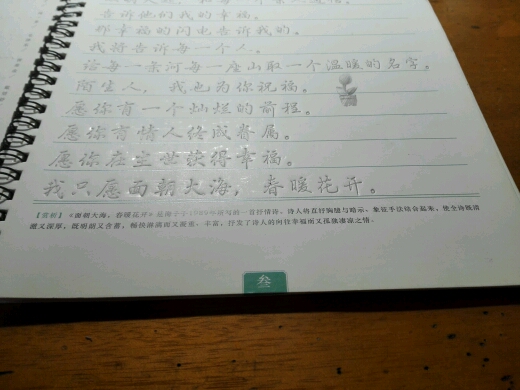 告诉他们我的幸福。
那幸福的闪电告诉我的。
我将告诉每一个人。
给每一条河每一座山取一个温暖的名字。
陌生人，我也为你祝福。
愿你有一个灿烂的前程。
愿你有情人终成眷属。
愿你在尘世获得幸福。
我只愿面朝大海，春暖花开。
【赏析】《面朝大海，春暖花开》是海子于1989年所写的一首抒情诗。诗人将直抒胸臆与暗示、象征手法结合起来，使全诗既清
澈又深厚，既明朗又含蓄，畅快淋漓而又凝重、丰富，抒发了诗人的向往幸福而又孤独凄凉之情。
叁